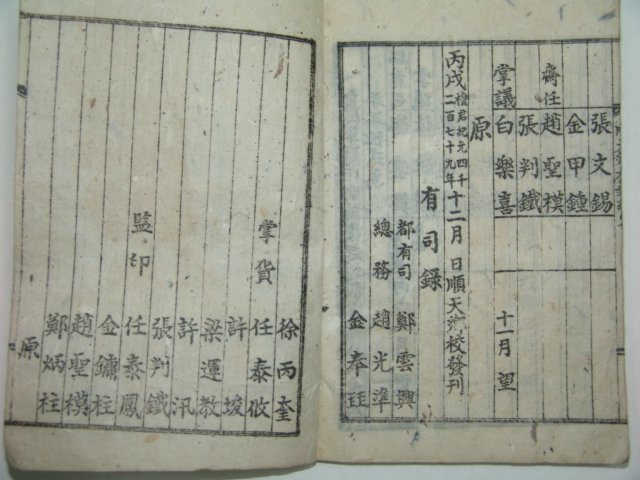 張文錫
金甲鍾
齋任 趙聖模
張判鐵
掌議 白樂喜 十一月 望
原
丙戌檀君紀元四千二百七十九年十二月 日順天鄕校發刊
有司錄
都有司 鄭雲興
總務 趙光準
金奉
徐丙奎
掌貨 任泰
許埈
梁運敎
許汛
張判鐵
監印 任泰鳳
金鏞柱
趙聖模
鄭炳柱
原